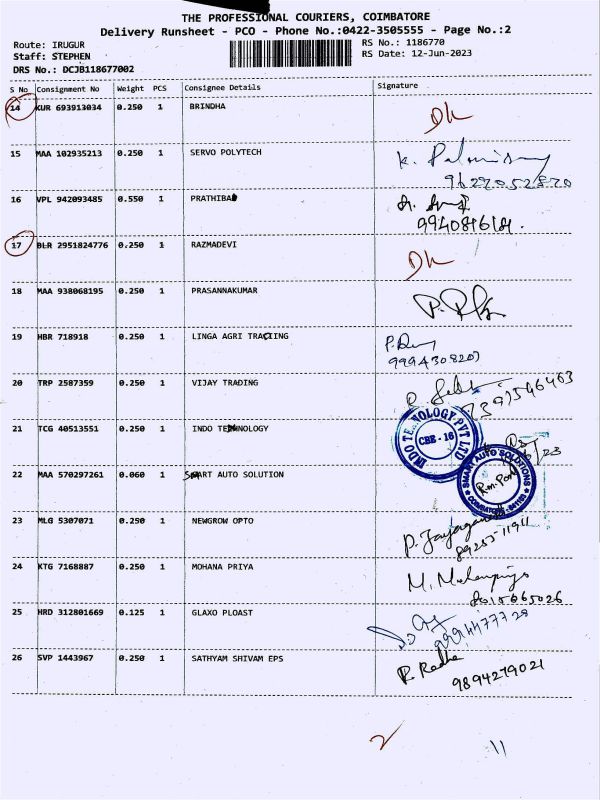 THE PROFESSIONAL COURIERS, COIMBATORE
Delivery Runsheet - PCO - Phone No.:0422-3505555 - Page No.:2
Route: IRUGUR RS No.: 1186770
Staff: STEPHEN RS Date: 12-Jun-2023
DRS No.: DCJB118677002
S No Consignment No Weight PCS Consignee Details Signature
14 KUR 693913034 0.250 1 BRINDHA
15 MAA 102935213 0.250 1 SERVO POLYTECH
9627052870
16 VPL 942093485 0.550 1 PRATHIBA
17 BLR 2951824776 0.250 1 RAZMADEVI
18 MAA 938068195 0.250 1 PRASANNAKUMAR
19 HBR 718918 0.250 1 LINGA AGRI TRACING
9994308207
20 TRP 2587359 0.250 1 VIJAY TRADING
21 TCG 40513551 0.250 1 INDO TECHNOLOGY
INDO TECHNOLOGY PVT LTD
CBE - 16
22 MAA 570297261 0.060 1 SMART AUTO SOLUTION
SMART AUTO SOLUTIONS
COIMBATORE
23 MLG 5307071 0.250 1 NEWGROW OPTO
24 KTG 7168887 0.250 1 MOHANA PRIYA
8015665026
25 HRD 312801669 0.125 1 GLAXO PLOAST
9994477728
26 SVP 1443967 0.250 1 SATHYAM SHIVAM EPS
R. Radha
9894279021
2 11